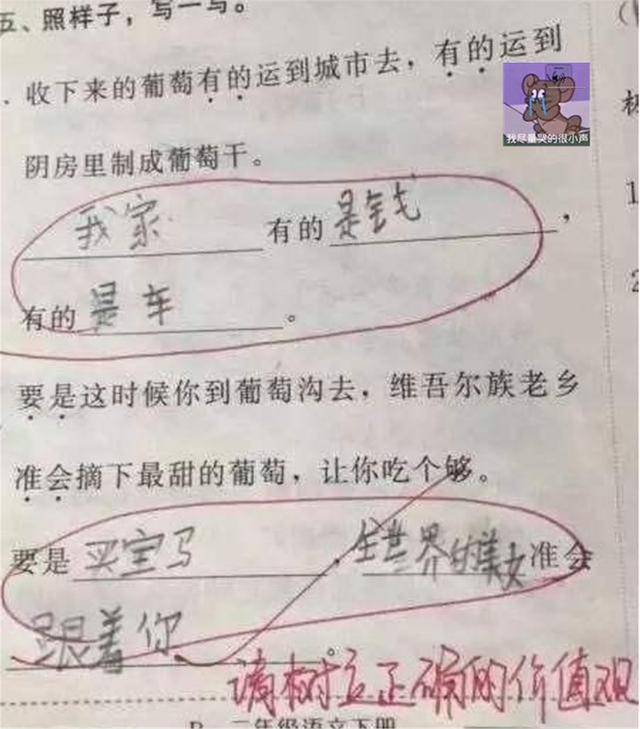 五、照样子，写一写。
．收下来的葡萄有的运到城市去，有的运到
我尽量哭的很小声
阴房里制成葡萄干。
我家有的是钱，
有的是车。
要是这时候你到葡萄沟去，维吾尔族老乡
准会摘下最甜的葡萄，让你吃个够。
要是买宝马，全世界的美女准会
跟着你。
请树立正确的价值观
二年级语文下册
1